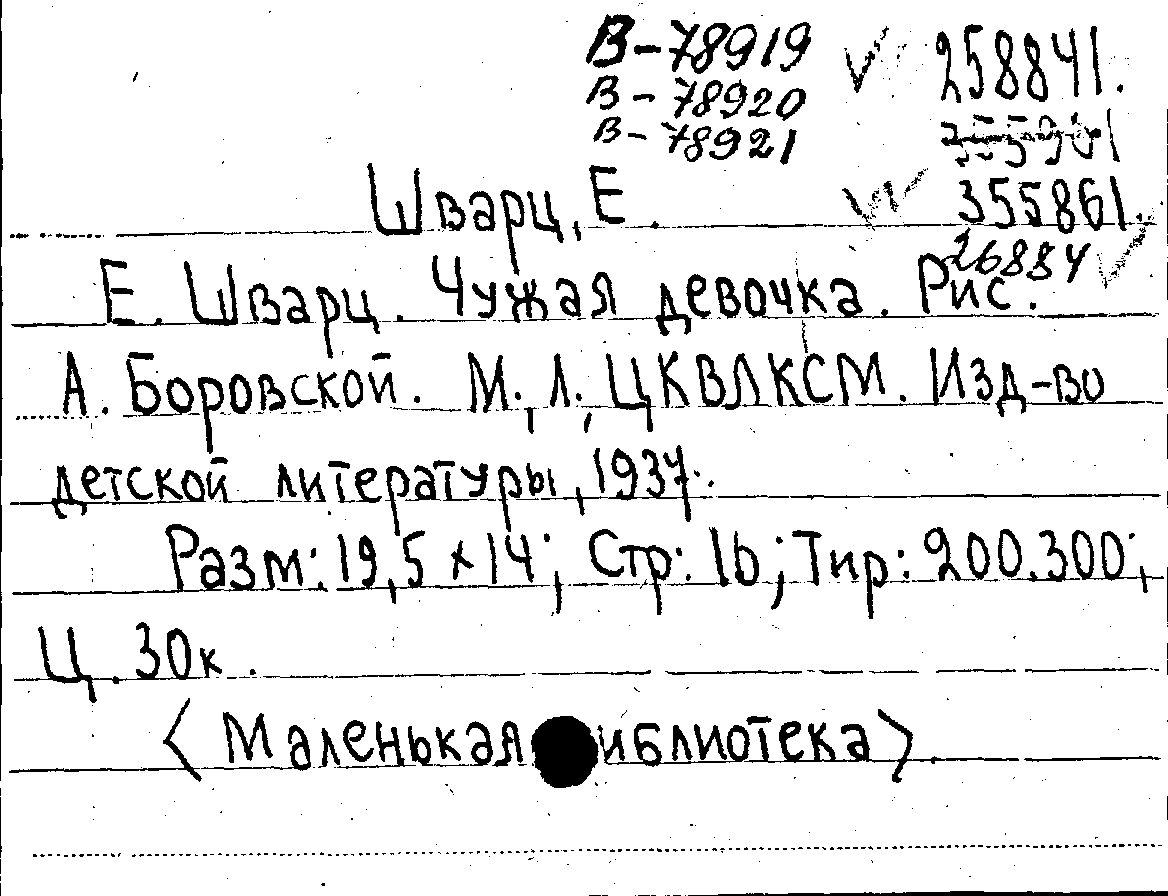 В-78919 258841.
В-78920
В-78921 355961
Шварц, Е. 355861.
26884
Е. Шварц. Чужая девочка. Рис.
А. Боровской. М.,Л., ЦКВЛКСМ. Изд-во
детской литературы, 1937.
Разм: 19,5 х 14; Стр: 16; Тир: 200.300;
Ц. 30к.
<Маленькая иблиотека>.